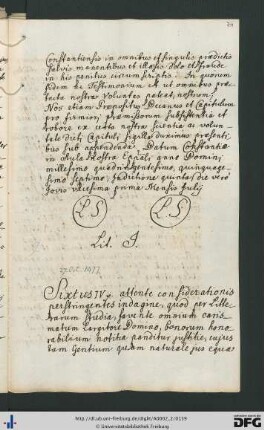 Constantiensis in omnibus et singulis praedictis
salvis manentibus et illaesis dolo et fraude
in his penitus circumscriptis. In quorum
fidem et testimonium et ut omnibus prae-
fecta nostra voluntas pateat, nostrum,
Nos etiam Praepositus Decanus et Capitulum
pro firmiori praemissorum subsistentia et
robore ex certa nostra scientia ac volun-
tate dicti Capituli sigilla duximus praesenti-
bus sub appendenda. Datum Constantiae
in aula Nostra Epali, anno Domini
millesimo quadringentesimo, quinquage-
simo septimo, Indictione quinta, die vero
Jovis vicesima prima Mensis Julij
LS LS
Lit. J.
1477
Sixtus IV. attente considerationis
perstringentes indagine, quod per litte-
rarum studia, favente omnium caris-
matum Largitore Domino, bonorum hono-
rabilium notitia panditur justitiae, cujus
tam Gentium quam naturale jus equa
http://dl.ub.uni-freiburg.de/diglit/
© Universitätsbibliothek Freiburg